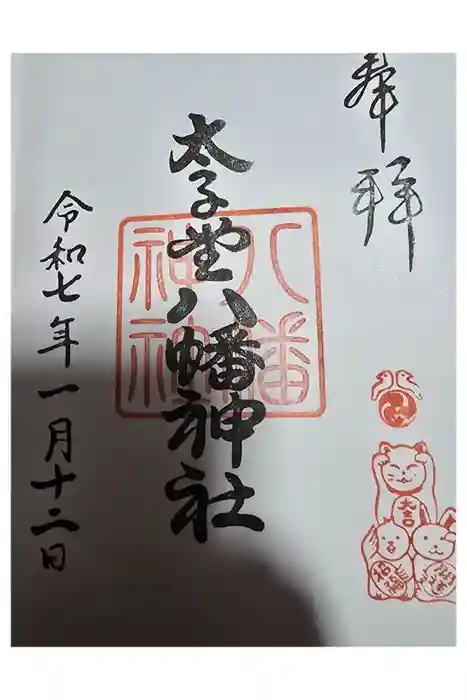 奉拝
太子堂八幡神社
八幡
神社
令和七年一月十二日
大吉